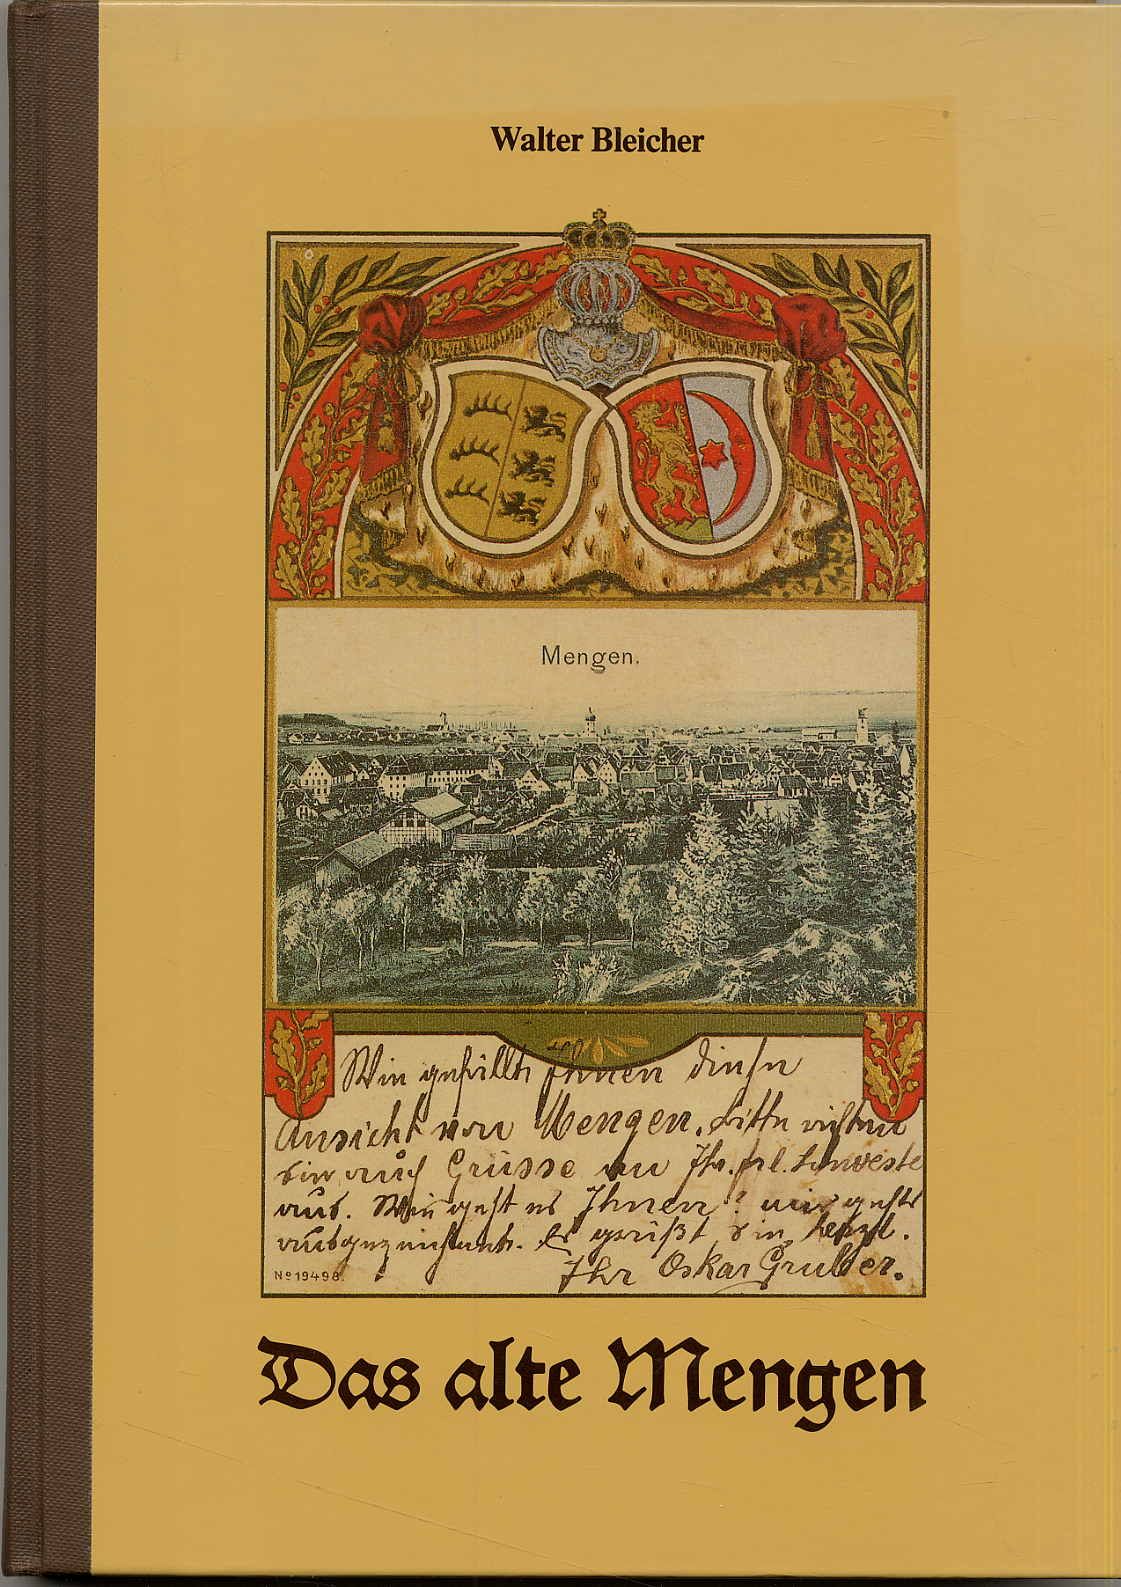 Walter Bleicher
Mengen.
Wie gefällt Ihnen diese
Ansicht von Mengen. bitte richten
Sie auch Grüsse an Ihr. frl. Schweste
aus. Wie geht es Ihnen? mir gehts
ausgezeichnet. Es grüßt Sie herzl.
Ihr Oskar Gruber.
Nº 19498.
Das alte Mengen